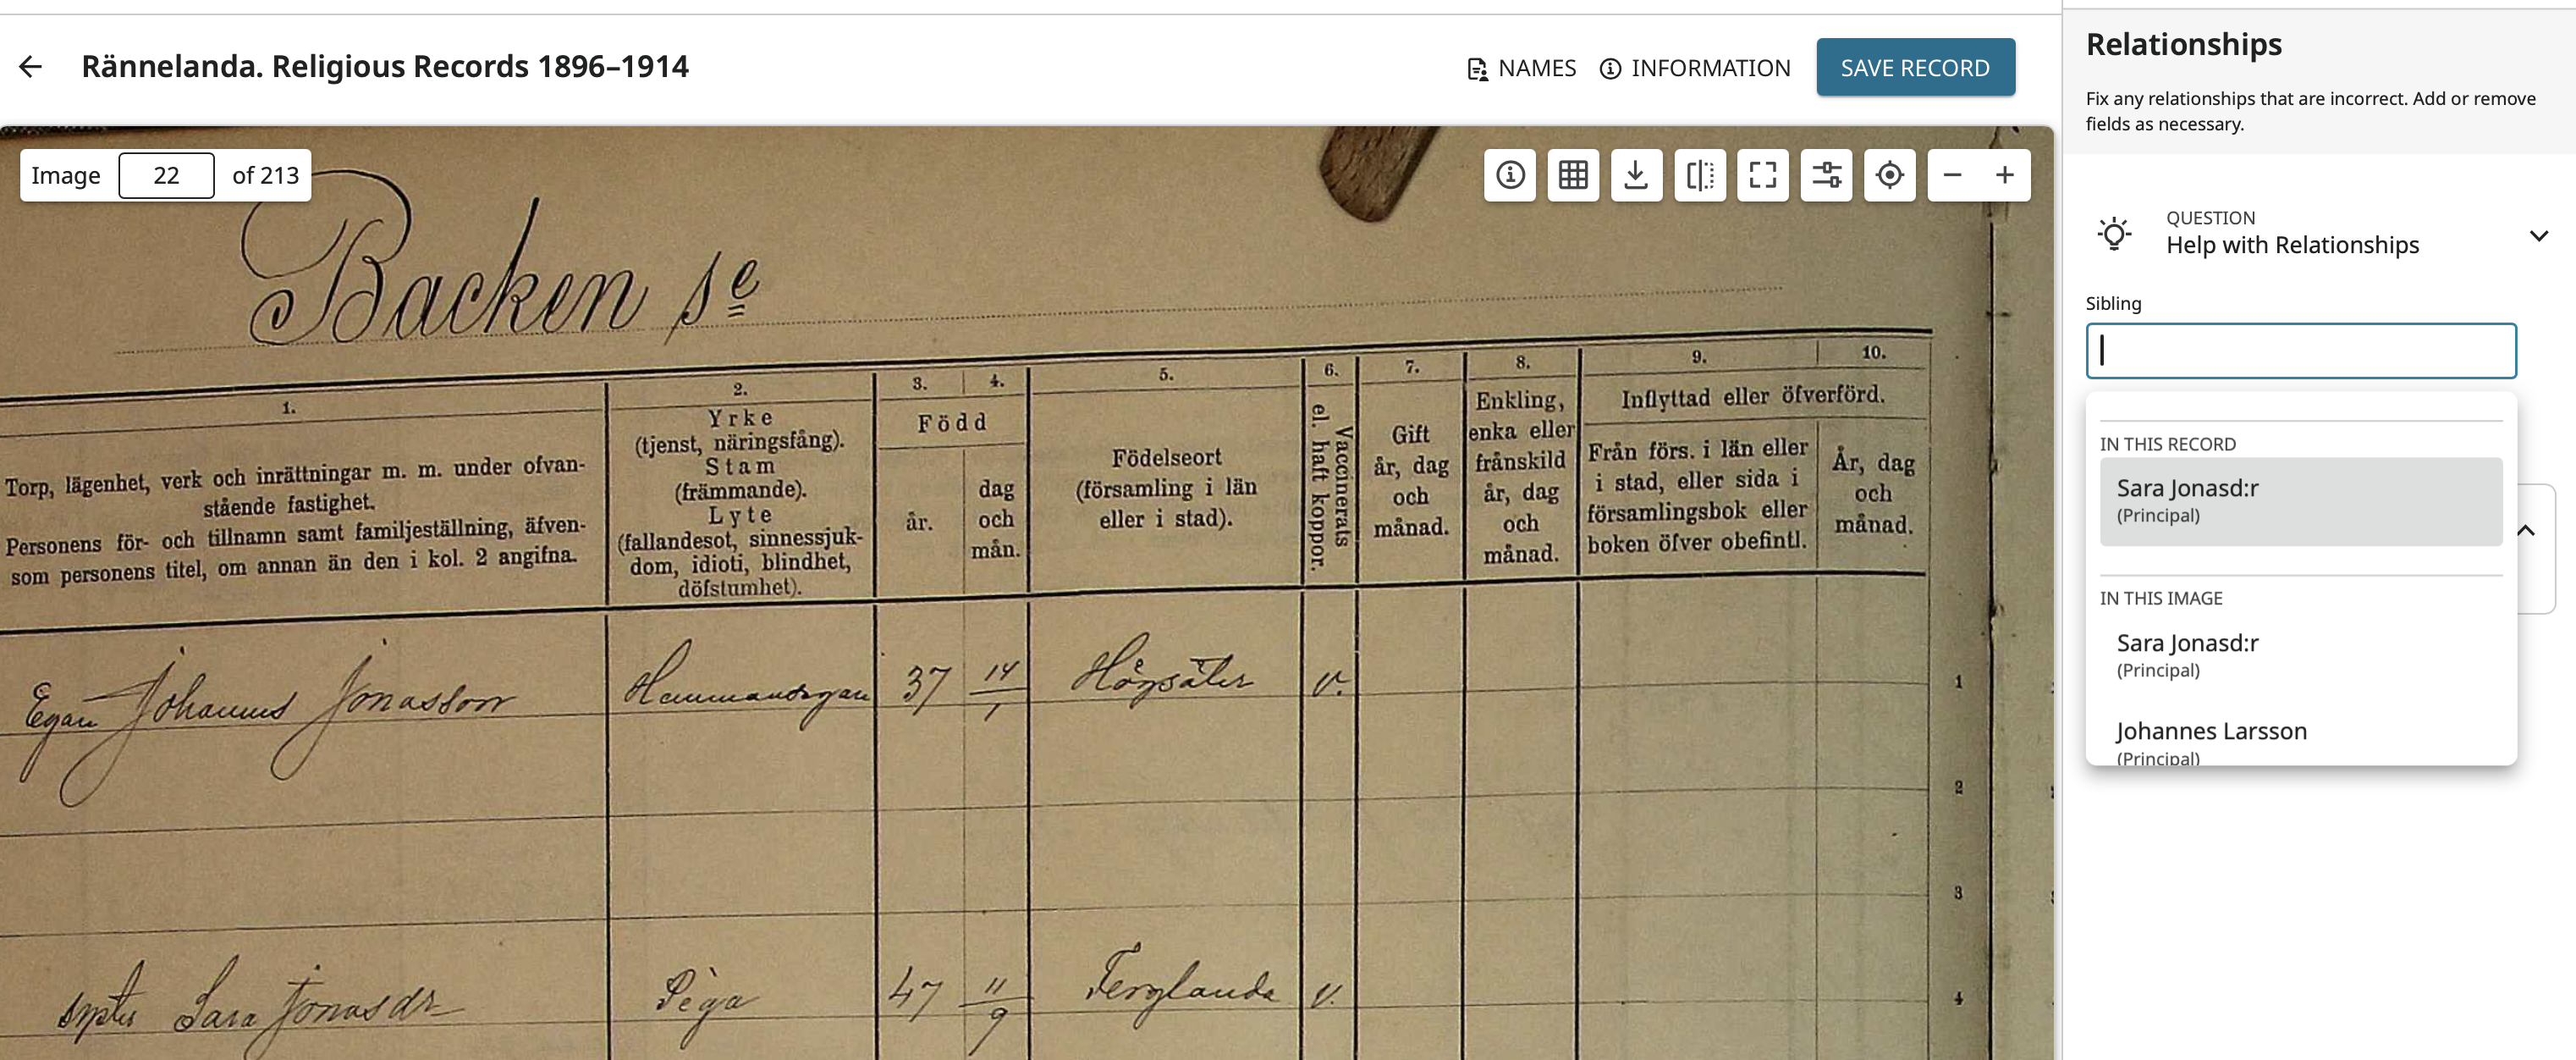 Rännelanda. Religious Records 1896–1914
NAMES
INFORMATION
SAVE RECORD
Image 22 of 213
Backen
1.
Torp, lägenhet, verk och inrättningar m. m. under ofvan-
stående fastighet.
Personens för- och tillnamn samt familjeställning, äfven-
som personens titel, om annan än den i kol. 2 angifna.
2.
Yrke
(tjenst, näringsfång).
Stam
(främmande).
Lyte
(fallandesot, sinnessjuk-
dom, idioti, blindhet,
döfstumhet).
3. 4.
Född
år.
dag
och
mån.
5.
Födelseort
(församling i län
eller i stad).
6.
Vaccinerats
el. haft koppor.
7.
Gift
år, dag
och
månad.
8.
Enkling,
enka eller
frånskild
år, dag
och
månad.
9. 10.
Inflyttad eller öfverförd.
Från förs. i län eller
i stad, eller sida i
församlingsbok eller
boken öfver obefintl.
År, dag
och
månad.
Egan Johannes Jonasson 37 14/1 Högsäter v. 1
2
3
Sara Jonasdr 47 11/9 v. 4
Relationships
Fix any relationships that are incorrect. Add or remove
fields as necessary.
QUESTION
Help with Relationships
Sibling
IN THIS RECORD
Sara Jonasd:r
(Principal)
IN THIS IMAGE
Sara Jonasd:r
(Principal)
Johannes Larsson
(Principal)